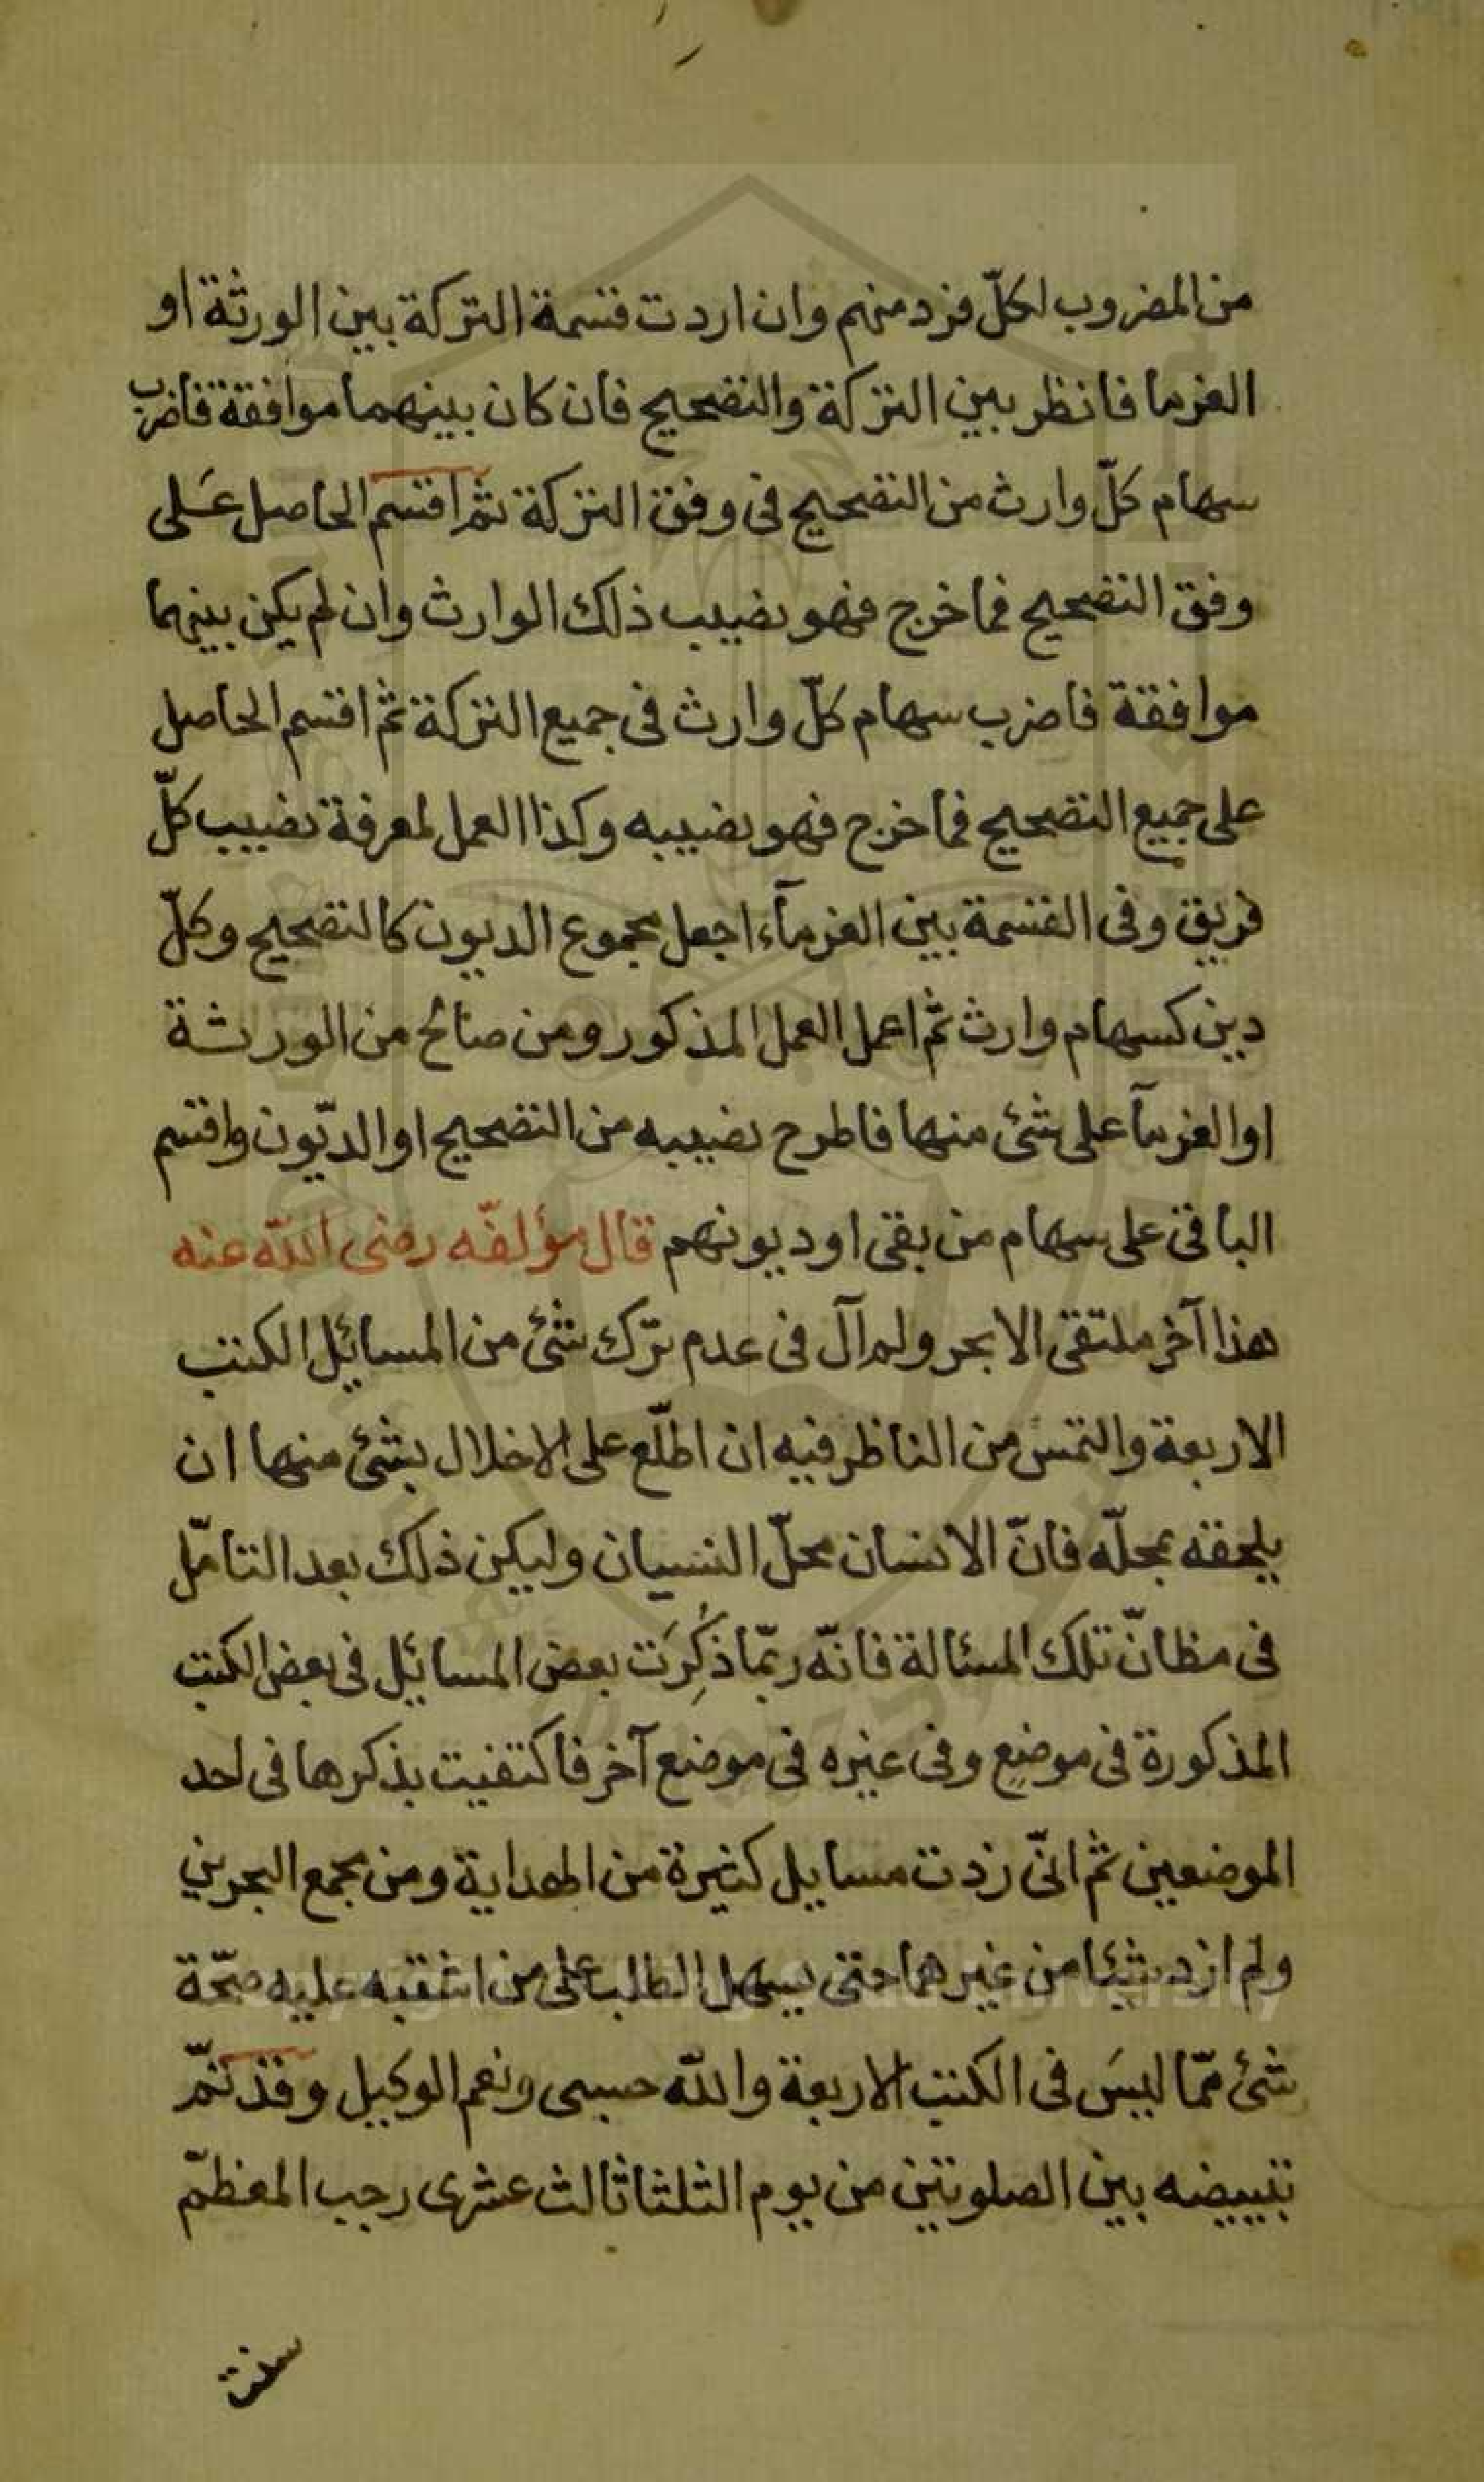 من المضروب لكلّ فرد منهم وان اردت قسمة التركة بين الورثة او
الغرما فانظر بين التركة والتصحيح فان كان بينهما موافقة فاضرب
سهام كلّ وارث من التصحيح فى وفق التركة ثم اقسم الحاصل عَلى
وفق التصحيح فما خرج فهو نصيب ذلك الوارث وان لم يكن بينهما
موافقة فاضرب سهام كلّ وارث فى جميع التركة ثم اقسم الحاصل
على جميع التصحيح فما خرج فهو نصيبه وكذا العمل لمعرفة نصيب كلّ
فريق وفى القسمة بين الغرمآء اجعل مجموع الديون كالتصحيح وكلّ
دين كسهام وارث ثم اعمل العمل المذكور ومن صالح من الورثة
او الغرمآ على شئ منها فاطرح نصيبه من التصحيح او الديّون واقسم
الباقى على سهام من بقى او ديونهم قال مؤلفّه رضى الله عنه
هذا آخر ملتقى الابحر ولم آل فى عدم ترك شئ من المسائل الكتب
الاربعة والتمس من الناظر فيه ان اطلّع على الاخلال بشئ منها ان
يلحقه بمحلّه فانّ الانسان محلّ النسيان وليكن ذلك بعد التتامّل
فى مظانّ تلك المسئالة فانّه ربّما ذُكِرَت بعض المسائل فى بعض الكتب
المذكورة فى موضع وفى غيره فى موضع آخر فاكتفيت بذكرها فى احد
الموضعين ثم انّى زدت مسايل كثيرة من الهداية ومن مجمع البحرين
ولم ازد شيئا من غيرهما حتى يسهل الطلب على من اشتبه عليه صحّة
شئ ممّا ليسَ فى الكتب الاربعة والله حسبى ونعم الوكيل وقد تمّ
تبييضه بين الصلوتين من يوم الثلثا ثالث عشرى رجب المعظّم
سنة